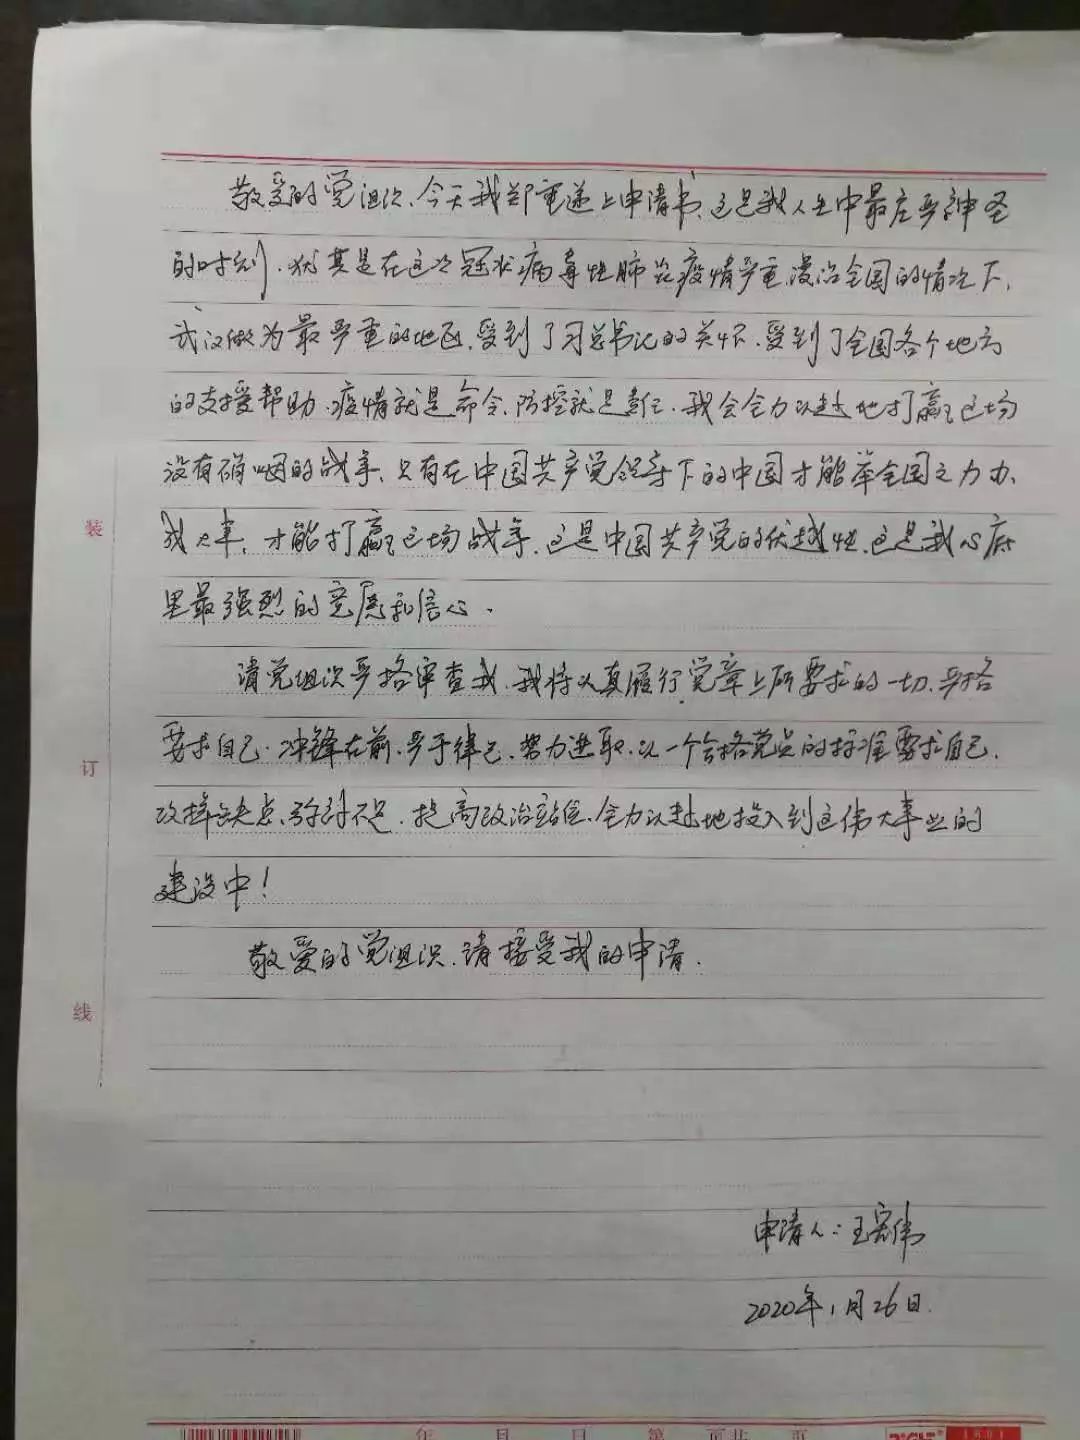 敬爱的党组织,今天我郑重递上申请书,这是我人生中最庄严神圣
的时刻,尤其是在这次冠状病毒性肺炎疫情严重,漫沿全国的情况下,
武汉做为最严重的地区,受到了习总书记的关怀,受到了全国各个地方
的支援帮助,疫情就是命令,防控就是责任,我会全力以赴地打赢这场
没有硝烟的战争,只有在中国共产党领导下的中国才能举全国之力办、
成大事,才能打赢这场战争,这是中国共产党的优越性,这是我心底
里最强烈的意愿和信心.
请党组织严格审查我,我将认真履行党章上所要求的一切,严格
要求自己,冲锋在前,严于律己,努力进取,以一个合格党员的标准要求自己,
改掉缺点,弥补不足,提高政治站位,全力以赴地投入到这伟大事业的
建设中!
敬爱的党组织,请接受我的申请.
装
订
线
申请人:王宏伟
2020年1月26日.
年 月 日 第 页共 页
1601